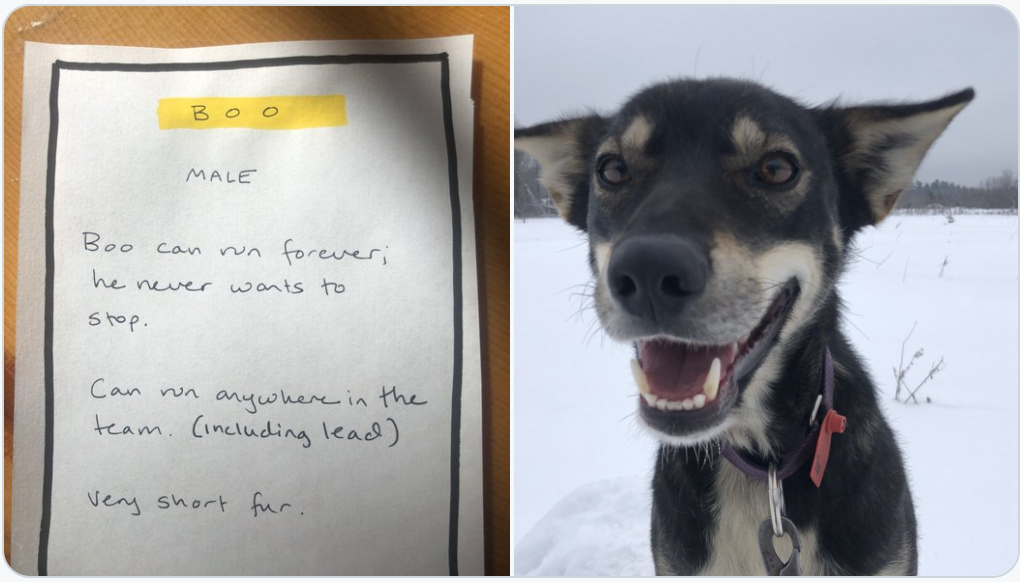 BOO
MALE
Boo can run forever;
he never wants to
stop.
Can run anywhere in the
team. (including lead)
very short fur.